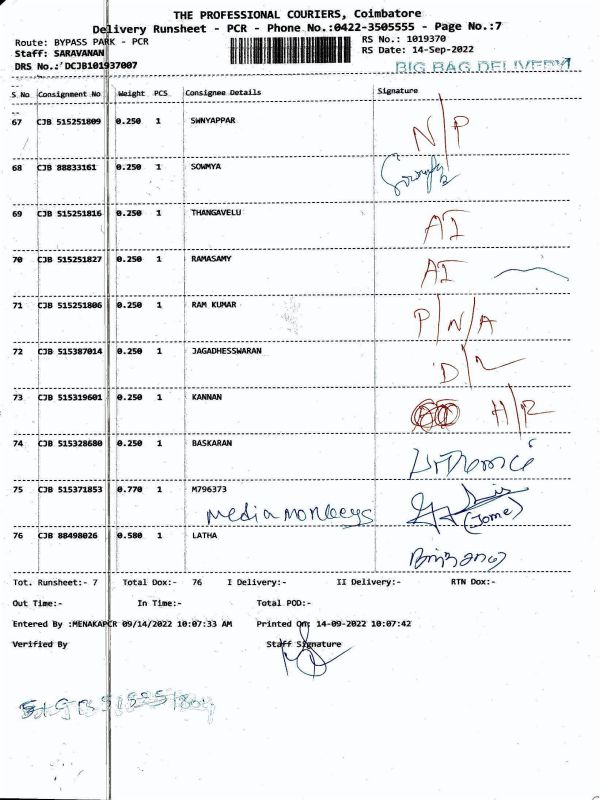 THE PROFESSIONAL COURIERS, Coimbatore
Delivery Runsheet - PCR - Phone No.:0422-3505555 - Page No.:7
Route: BYPASS PARK - PCR RS No.: 1019370
Staff: SARAVANAN RS Date: 14-Sep-2022
DRS No.: DCJB101937007 BIG BAG DELIVERY
S No Consignment No Weight PCS Consignee Details Signature
67 CJB 515251809 0.250 1 SWNYAPPAR N/P
68 CJB 88833161 0.250 1 SOWMYA
69 CJB 515251816 0.250 1 THANGAVELU AI
70 CJB 515251827 0.250 1 RAMASAMY AI
71 CJB 515251806 0.250 1 RAM KUMAR P/N/A
72 CJB 515387014 0.250 1 JAGADHESSWARAN D/L
73 CJB 515319601 0.250 1 KANNAN H/R
74 CJB 515328680 0.250 1 BASKARAN
75 CJB 515371853 0.770 1 M796373
Media Monkeys (Jome)
76 CJB 88498026 0.580 1 LATHA
Tot. Runsheet:- 7 Total Dox:- 76 I Delivery:- II Delivery:- RTN Dox:-
Out Time:- In Time:- Total POD:-
Entered By :MENAKAPCR 09/14/2022 10:07:33 AM Printed On: 14-09-2022 10:07:42
Verified By Staff Signature